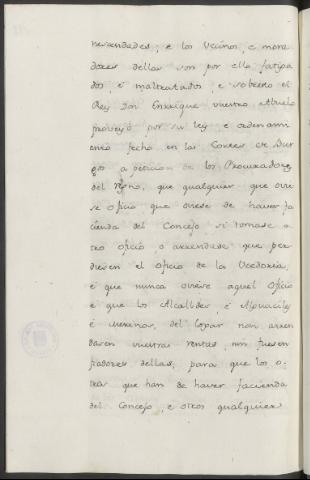 neziendades; e los vecinos, e mora
dores dellas son por ello fatiga
dos, é maltratados, e sobresto el
Rey Don Enrique vuestro Abuelo
proveyó por su ley, e ordenami
ento fecho en las Cortes de Bur
gos a peticion de los Procuradores
del regno, que qualquier que ovie
se oficio que oviese de haver fa
cienda del Concejo si tomase o
tro oficio o arrendase que per
diesen el oficio de la Veedoria,
é que nunca oviese aquel oficio
e que los Alcalldes, é Alguaciles
é merinos, del logar non arren
dasen vuestras rentas, nin fuesen
fiadores dellas; para que los o-
tros que han de haver facienda
del Concejo, e otros qualquier